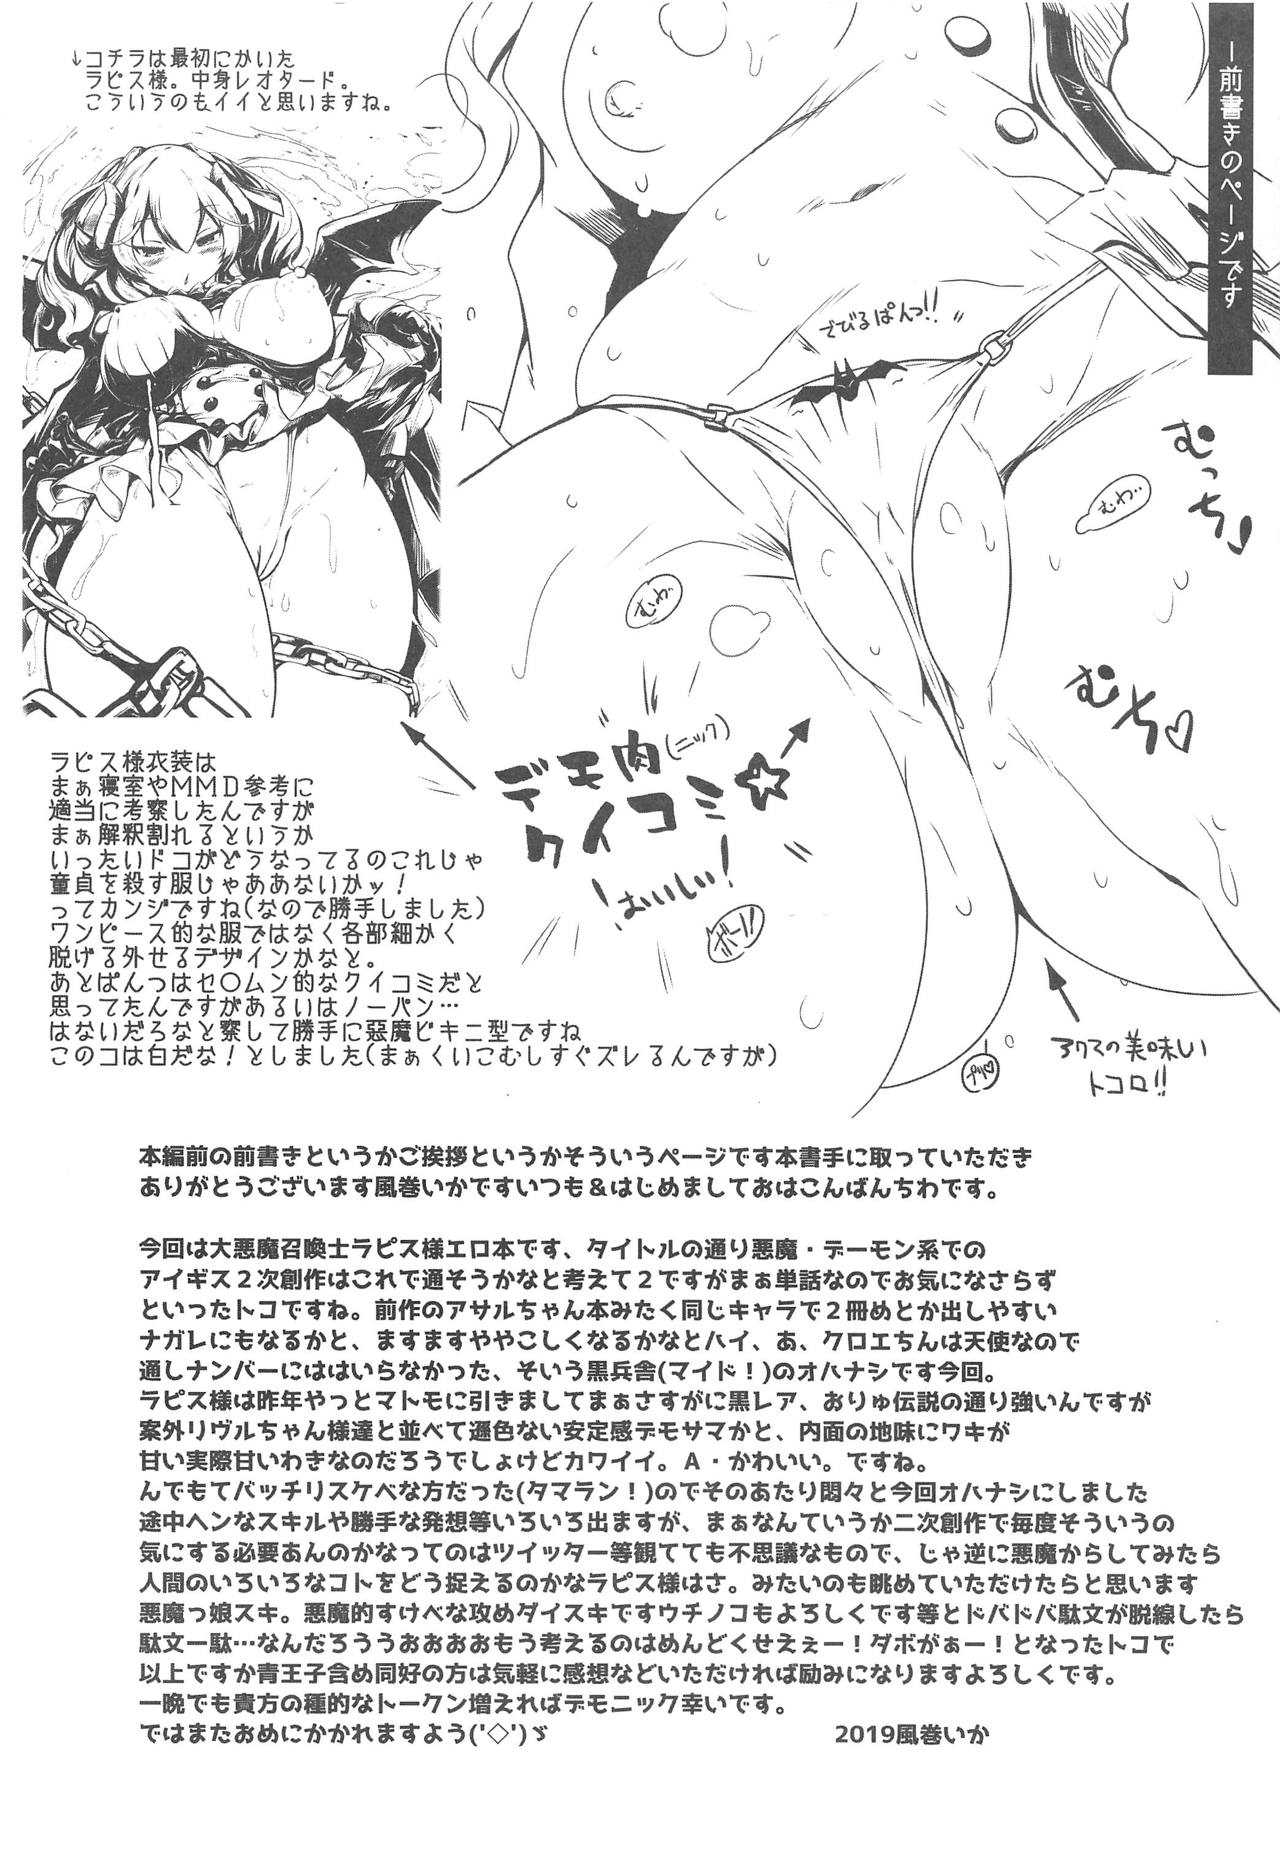 －前書きのページです
↓コチラは最初にかいた
ラピス様。中身レオタード。
こういうのもイイと思いますね。
でびるぱんつ!!
むっち♪
むわ‥
むわ
むち♡
デモ肉(ニック)
クイコミ☆
はいしい!
プリ♡
アクマの美味しい
トコロ!!
ラピス様衣装は
まぁ寝室やＭＭＤ参考に
適当に考察したんですが
まぁ解釈割れるというか
いったいドコがどうなってるのこれじゃ
童貞を殺す服じゃああないかッ！
ってカンジですね(なので勝手しました)
ワンピース的な服ではなく各部細かく
脱げる外せるデザインかなと。
あとぱんつはセ〇ムン的なクイコミだと
思ってたんですがあるいはノーパン…
はないだろなと察して勝手に惡魔ビキニ型ですね
このコは白だな！としました(まぁくいこむしすぐズレるんですが)
本編前の前書きというかご挨拶というかそういうページです本書手に取っていただき
ありがとうございます風巻いかですいつも＆はじめましておはこんばんちわです。
今回は大悪魔召喚士ラピス様エロ本です、タイトルの通り悪魔・デーモン系での
アイギス２次創作はこれで通そうかなと考えて２ですがまぁ単話なのでお気になさらず
といったトコですね。前作のアサルちゃん本みたく同じキャラで２冊めとか出しやすい
ナガレにもなるかと、ますますややこしくなるかなとハイ、あ、クロエちんは天使なので
通しナンバーにははいらなかった、そいう黒兵舎(マイド！)のオハナシです今回。
ラピス様は昨年やっとマトモに引きましてまぁさすがに黒レア、おりゅ伝説の通り強いんですが
案外リヴルちゃん様達と並べて遜色ない安定感デモサマかと、内面の地味にワキが
甘い実際甘いわきなのだろうでしょけどカワイイ。Ａ・かわいい。ですね。
んでもてバッチリスケベな方だった(タマラン！)のでそのあたり悶々と今回オハナシにしました
途中ヘンなスキルや勝手な発想等いろいろ出ますが、まぁなんていうか二次創作で毎度そういうの
気にする必要あんのかなってのはツイッター等観てても不思議なもので、じゃ逆に悪魔からしてみたら
人間のいろいろなコトをどう捉えるのかなラピス様はさ。みたいのも眺めていただけたらと思います
悪魔っ娘スキ。悪魔的すけべな攻めダイスキですウチノコもよろしくです等とドバドバ駄文が脱線したら
駄文一駄…なんだろううおおおおもう考えるのはめんどくせえぇー！ダボがぁー！となったトコで
以上ですか青王子含め同好の方は気軽に感想などいただければ励みになりますよろしくです。
一晩でも貴方の種的なトークン増えればデモニック幸いです。
ではまたおめにかかれますよう('◇')ゞ
2019風巻いか